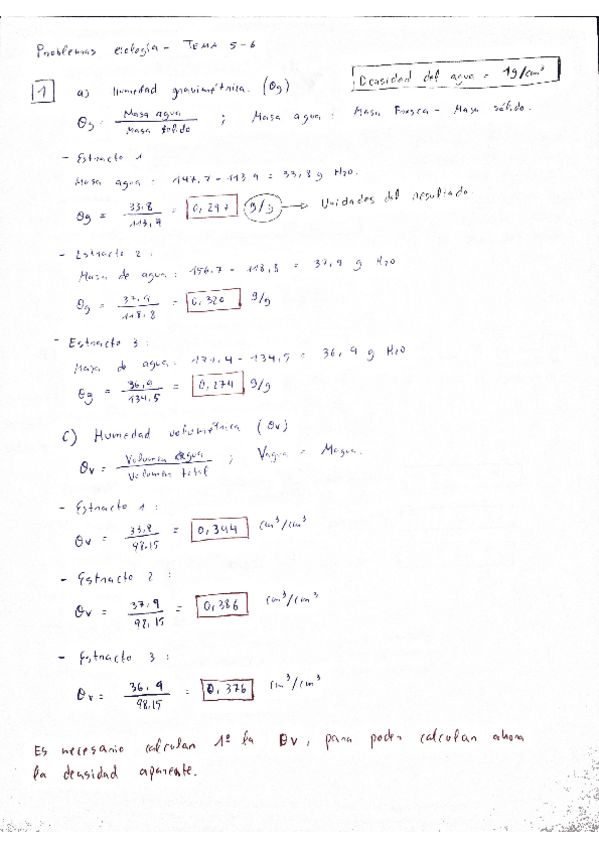 Problemas ecología - TEMA 5-6
Densidad del agua = 1g/cm³
1 a) Humedad gravimétrica. (θg)
θg = Masa agua / Masa sólido ; Masa agua : Masa Fresca - Masa sólido.
- Estracto 1
Masa agua : 147.7 - 113.9 = 33,8 g H2O.
θg = 33.8 / 113,9 = 0,297 g/g → Unidades del resultado.
- Estracto 2 :
Masa de agua : 156.7 - 118,8 = 37,9 g H2O
θg = 37,9 / 118,8 = 0,320 g/g
- Estracto 3 :
Masa de agua : 171.4 - 134,5 = 36,9 g H2O
θg = 36,9 / 134,5 = 0,274 g/g
C) Humedad volumétrica (θv)
θv = Volumen agua / Volumen total ; Vagua = Magua.
- Estracto 1 :
θv = 33,8 / 98.15 = 0,344 cm³/cm³
- Estracto 2 :
θv = 37,9 / 98,15 = 0,386 cm³/cm³
- Estracto 3 :
θv = 36,9 / 98.15 = 0,376 cm³/cm³
Es necesario calcular 1º la θv, para poder calcular ahora
la densidad aparente.